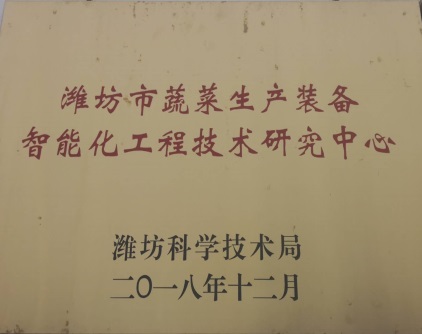 潍坊市蔬菜生产装备
智能化工程技术研究中心
潍坊科学技术局
二〇一八年十二月